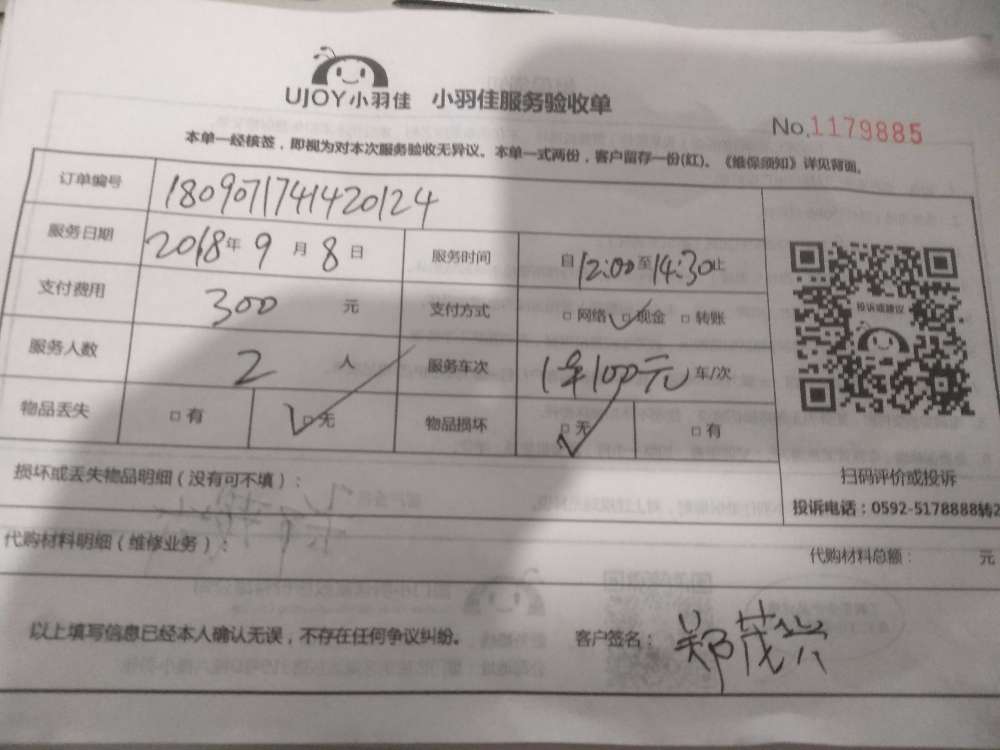 UJOY小羽佳 小羽佳服务验收单
No.1179885
本单一经核签，即视为对本次服务验收无异议。本单一式两份，客户留存一份(红)。《维保须知》详见背面。
订单编号 180907174142​0124
服务日期 2018年 9 月 8 日 服务时间 自12:00至14:30止
支付费用 300 元 支付方式 □网络 □现金 □转账
服务人数 2 人 服务车次 1车100元 车/次
物品丢失 □有 □无 物品损坏 □无 □有
投诉或建议
扫码评价或投诉
投诉电话：0592-5178888转2
损坏或丢失物品明细（没有可不填）：
代购材料明细（维修业务）： 代购材料总额： 元
以上填写信息已经本人确认无误，不存在任何争议纠纷。 客户签名：郑茂兴